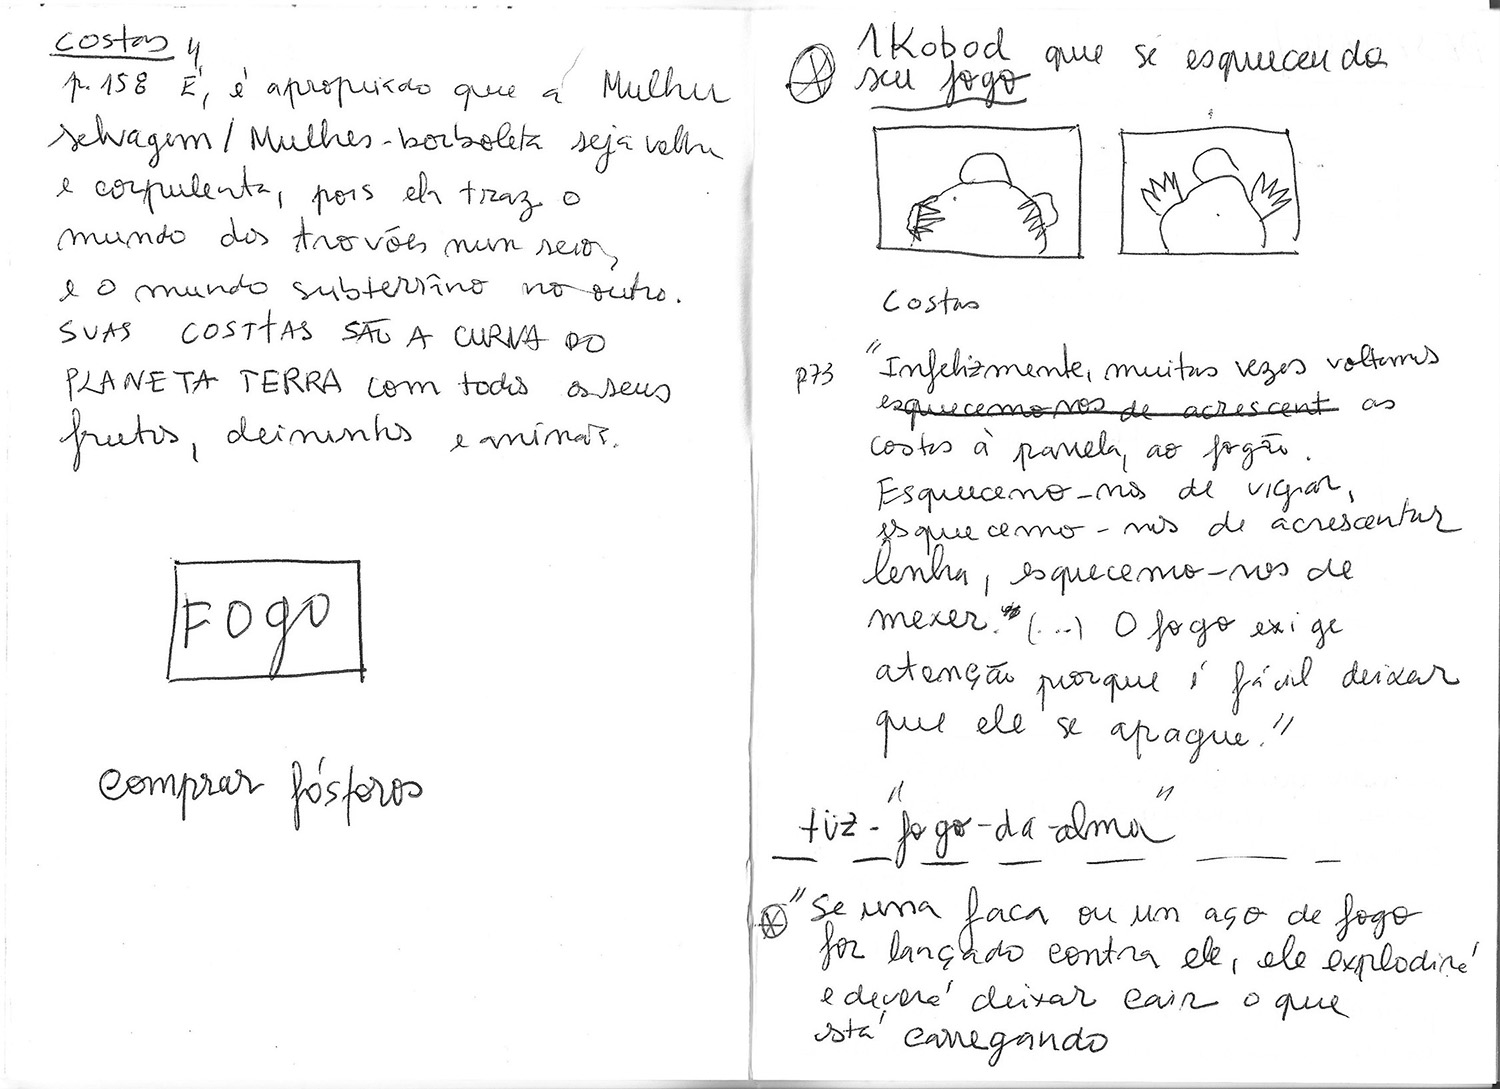 costas
p. 158 É, é apropriado que a Mulher
selvagem / Mulher-borboleta seja velha
e corpulenta, pois ela traz o
mundo dos trovões num seio,
e o mundo subterrâno no outro.
SUAS COSTAS SÃO A CURVA DO
PLANETA TERRA com todos os seus
frutos, e animais.
FOGO
comprar fósforos
1 Kobod que se esqueceu do
seu fogo
Costas
p73 "Infelizmente, muitas vezes voltamos
esquecemo nos de acrescent as
costas à panela, ao fogão.
Esquecemo-nos de vigiar,
esquecemo-nos de acrescentar
lenha, esquecemo-nos de
mexer." (...) O fogo exige
atenção porque é fácil deixar
que ele se apague."
tüz - "fogo-da-alma"
"Se uma faca ou um aço de fogo
for lançado contra ele, ele explodirá
e deverá deixar cair o que
está carregando